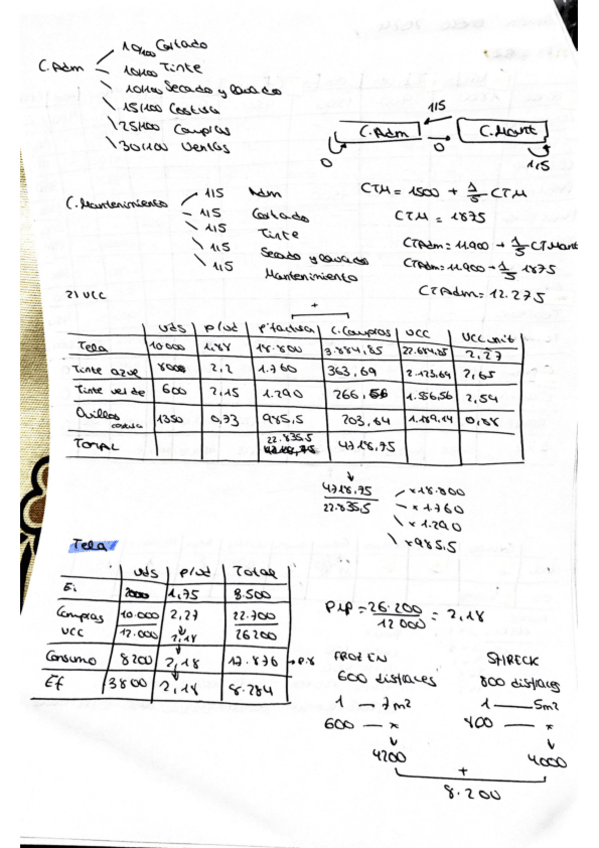 C.Adm
10/100 Cortado
10/100 Tinte
10/100 Secado y lavado
15/100 Costura
25/100 Compras
30/100 Ventas
1/5
C.Adm
C.Mant
0
0
1/5
C.Mantenimiento
1/5 Adm
1/5 Cortado
1/5 Tinte
1/5 Secado y lavado
1/5 Mantenimiento
CTM = 1500 + 1/5 CTM
CTM = 1875
CTAdm = 11.900 + 1/5 CTMant
CTAdm = 11.900 + 1/5 1875
CTAdm = 12.275
2) UCC
+
uds p/ud P.factura C.Compras UCC UCC unit
Tela 10000 1,88 18.800 3.884,85 22.684,85 2,27
Tinte azul 800 2,2 1.760 363,69 2.123,69 2,65
Tinte verde 600 2,15 1.290 266,56 1.556,56 2,54
Ovillos costura 1350 0,73 985,5 203,64 1.189,14 0,88
TOTAL 22.835,5 4718,75
4718,75 / 22.835,5
x 18.800
x 1.760
x 1.290
x 985,5
Tela
uds p/ud Total
Ei 2000 1,75 3.500
Compras 10.000 2,27 22.700
UCC 12.000 2,18 26200
Consumo 8200 2,18 17.876
Ef 3800 2,18 8.284
PMP = 26.200 / 12000 = 2,18
FROZEN
600 disfraces
1 — 7m2
600 — x
4200
SHRECK
800 disfraces
1 — 5m2
800 — x
4000
+
8.200